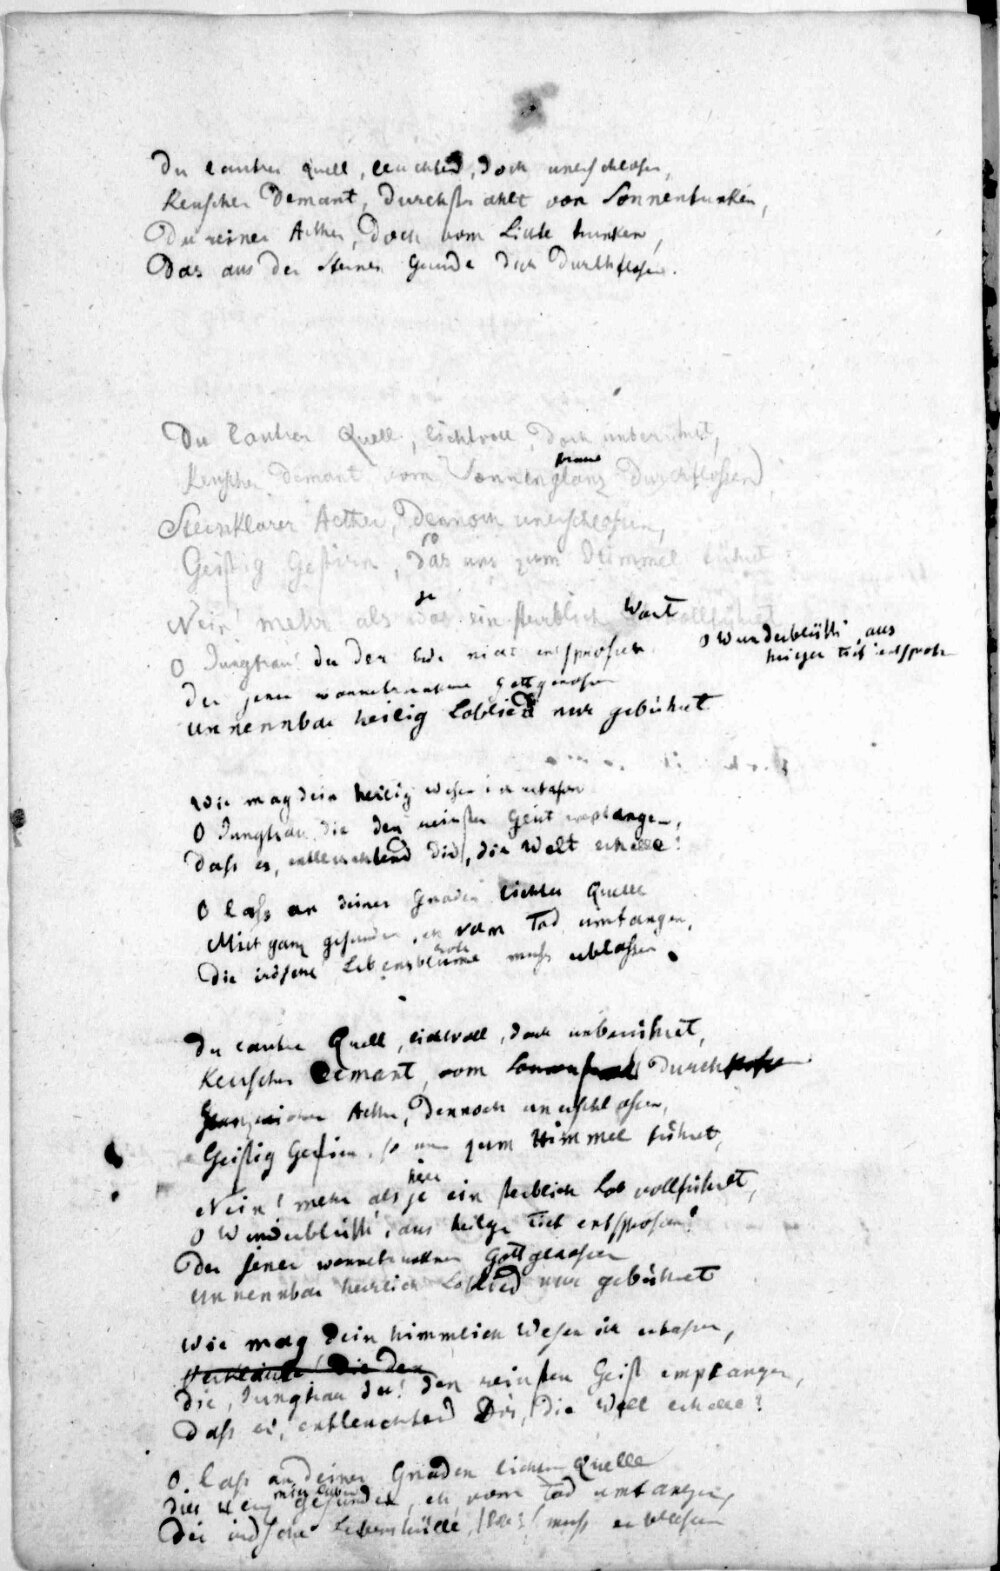 Du lautrer Quell, leuchtend, doch unerschlossen,
Keuscher Demant, durchstrahlt von Sonnenfunken,
Du reiner Aether, doch vom Lichte trunken,
Das aus der Sterne Grunde dich durchflossen.
Du lautrer Quell, lichtvoll, doch unberühret,
Keuscher Demant vom Sonnenglanz durchflossen,
Sternklarer Aether, dennoch unerschlossen,
Geistig Gestirn, das uns zum Himmel führet
so
Nein! mehr als das ein sterblich Wort vollführet
je
O Jungfrau! du der Erde nicht entsprossen
O Wunderblüth', aus
heilger Tief' entspross
Der jener wonnetrunknen Gottgenossen
Unnennbar heilig Loblied nur gebühret
Wie mag dein heilig Wesen ich erfassen
O Jungfrau, die den reinsten Geist empfangen,
Dass er, entleuchtend dir, die Welt erhelle?
O lass an deiner Gnaden lichter Quelle
Mich ganz gesunden, eh vom Tod umfangen,
Die irdsche Lebensblume muss erblassen.
Du lautrer Quell, lichtvoll, doch unberühret,
Keuscher Demant, vom durch
Aether, dennoch unerschlossen,
Geistig Gestirn, so uns zum Himmel führet,
Nein! mehr als je ein sterblich Lob vollführet,
hier
O Wunderblüth', aus heilger Tief' entsprossen!
Der jener wonnetrunknen Gottgenossen
Unnennbar herrlich Loblied nur gebühret
Wie mag dein himmlisch Wesen ich erfassen,
die den
Die, Jungfrau du! den reinsten Geist empfangen,
Dass er, entleuchtend dir, die Welt erhelle?
O lass an deiner Gnaden lichter Quelle
Dies Herz gesunden, eh vom Tod umfangen,
Die irdsche Lebenshülle muss erblassen